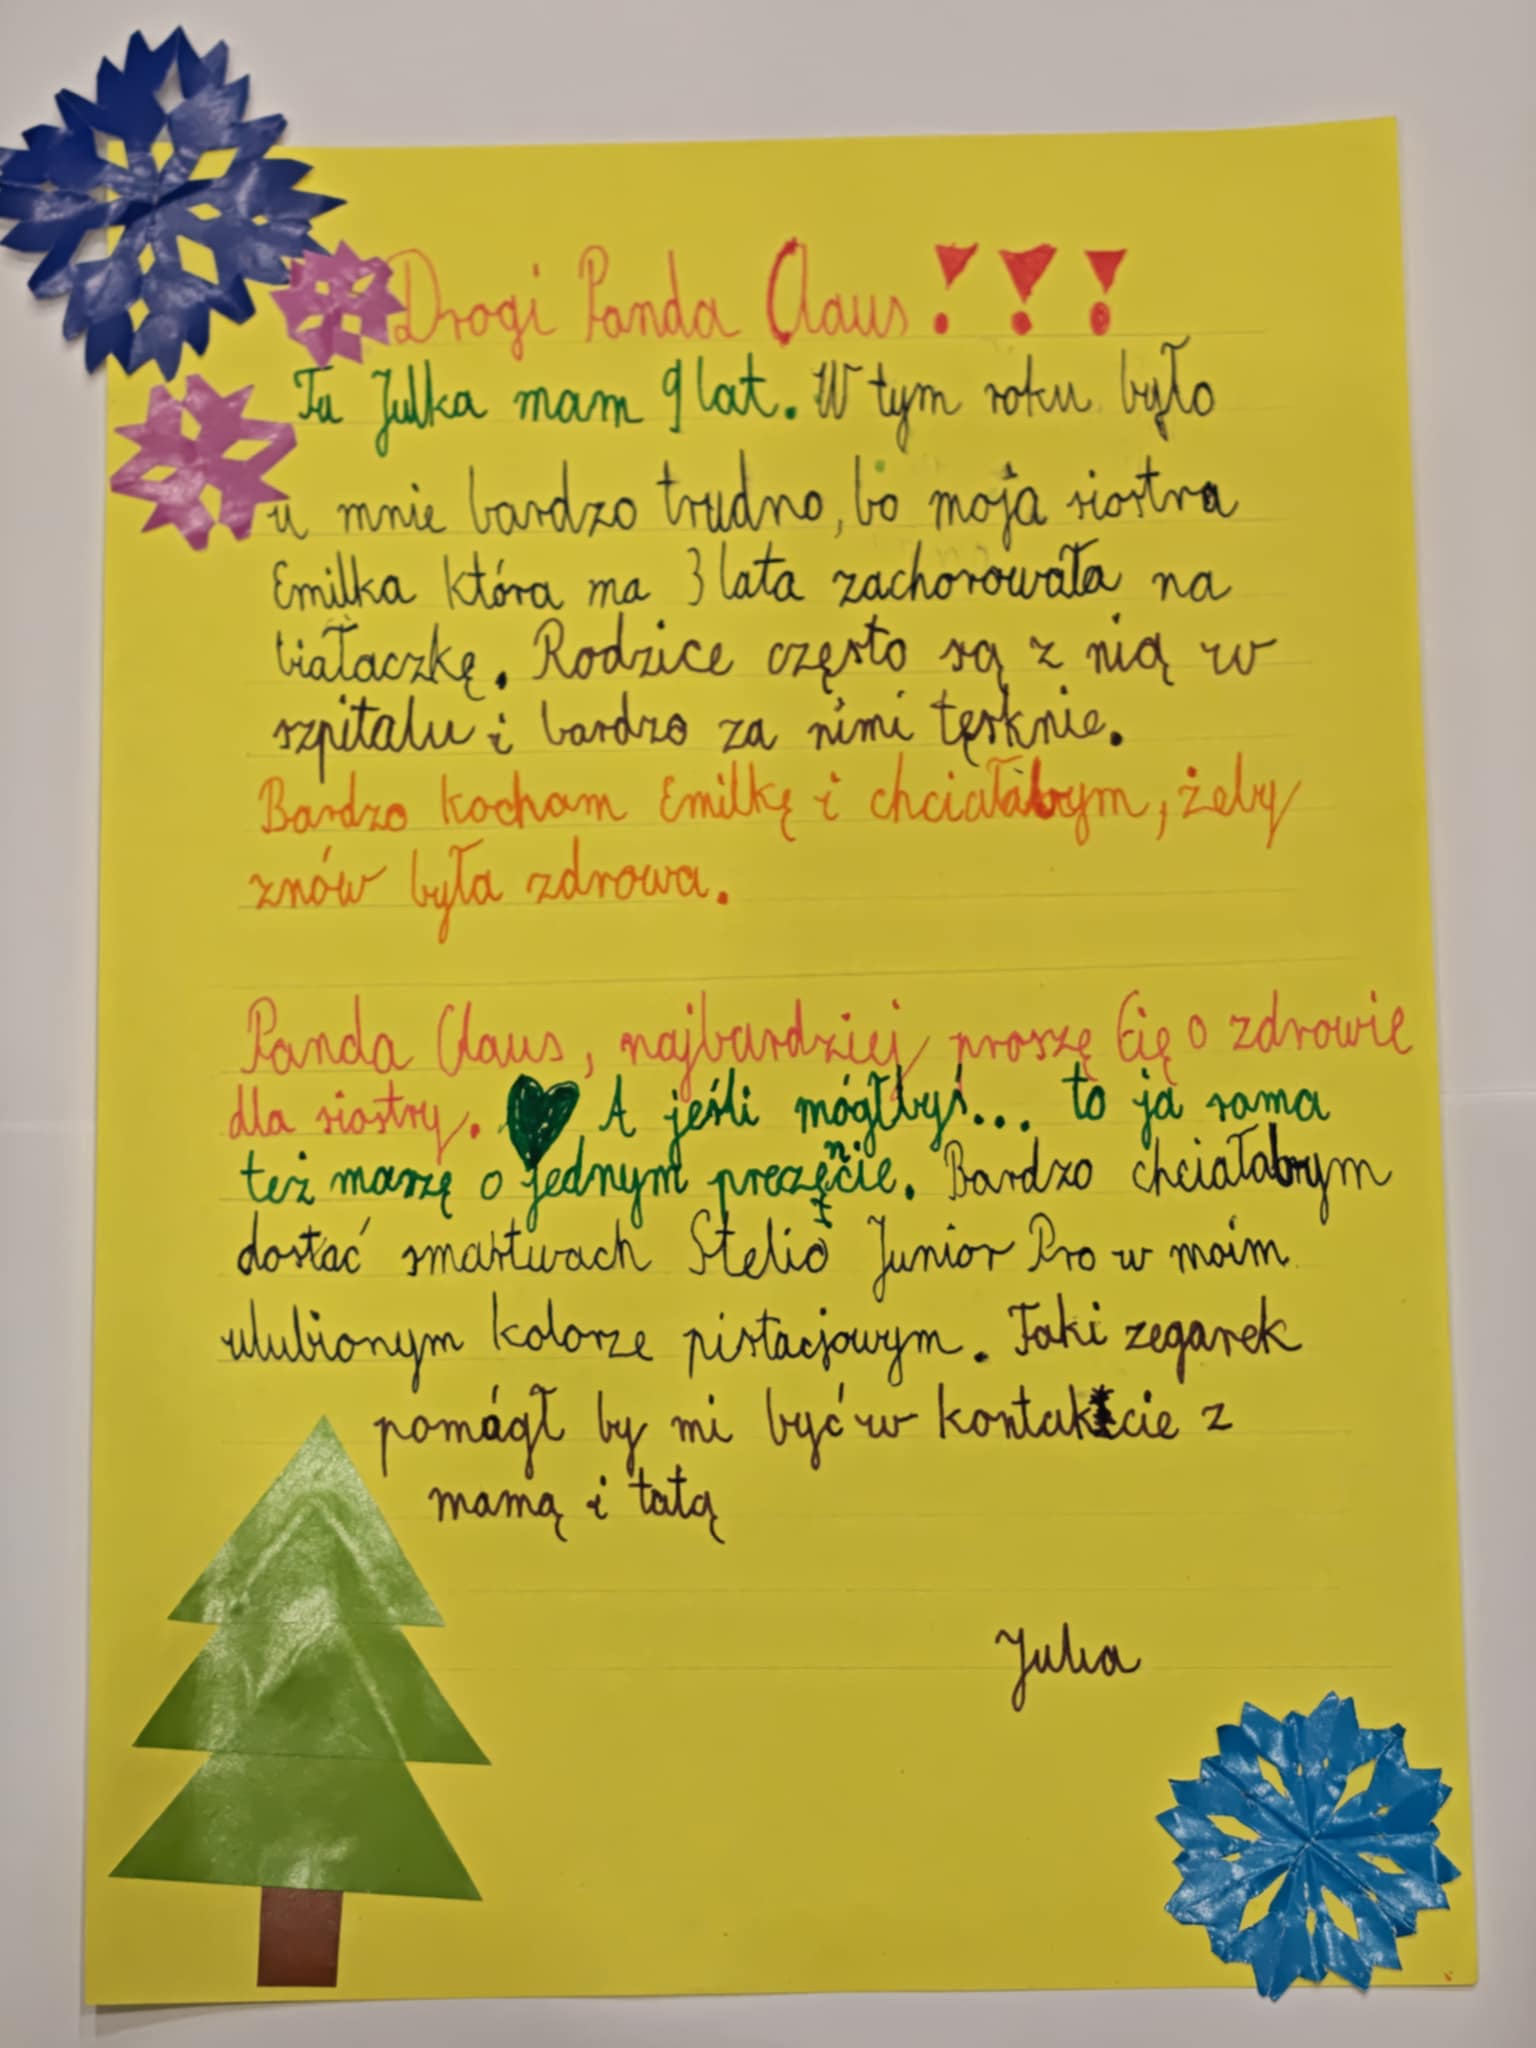 Drogi Panda Claus!!!
Tu Julka mam 9 lat. W tym roku było
u mnie bardzo trudno, bo moja siostra
Emilka która ma 3 lata zachorowała na
białaczkę. Rodzice często są z nią w
szpitalu i bardzo za nimi tęsknie.
Bardzo kocham Emilkę i chciałabym, żeby
znów była zdrowa.
Panda Claus, najbardziej proszę Cię o zdrowie
dla siostry. A jeśli mógłbyś... to ja sama
też marzę o jednym prezęncie. Bardzo chciałabrym
dostać smartwach Stelio Junior Pro w moim
ulubionym kolorze pistacjowym. Taki zegarek
pomógł by mi być w kontakcie z
mamą i tatą
Julia